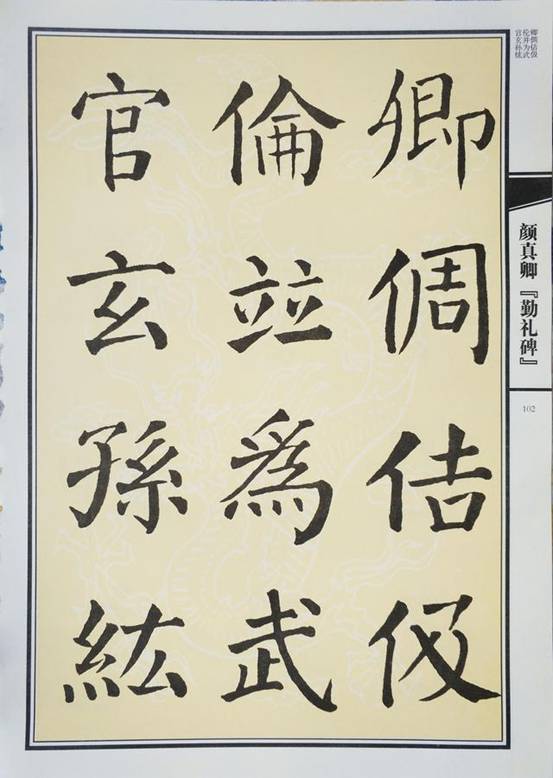 卿倜佶伋
倫竝爲武
官玄孫紘
卿倜佶伋
伦并为武
官玄孙纮
颜真卿『勤礼碑』
102